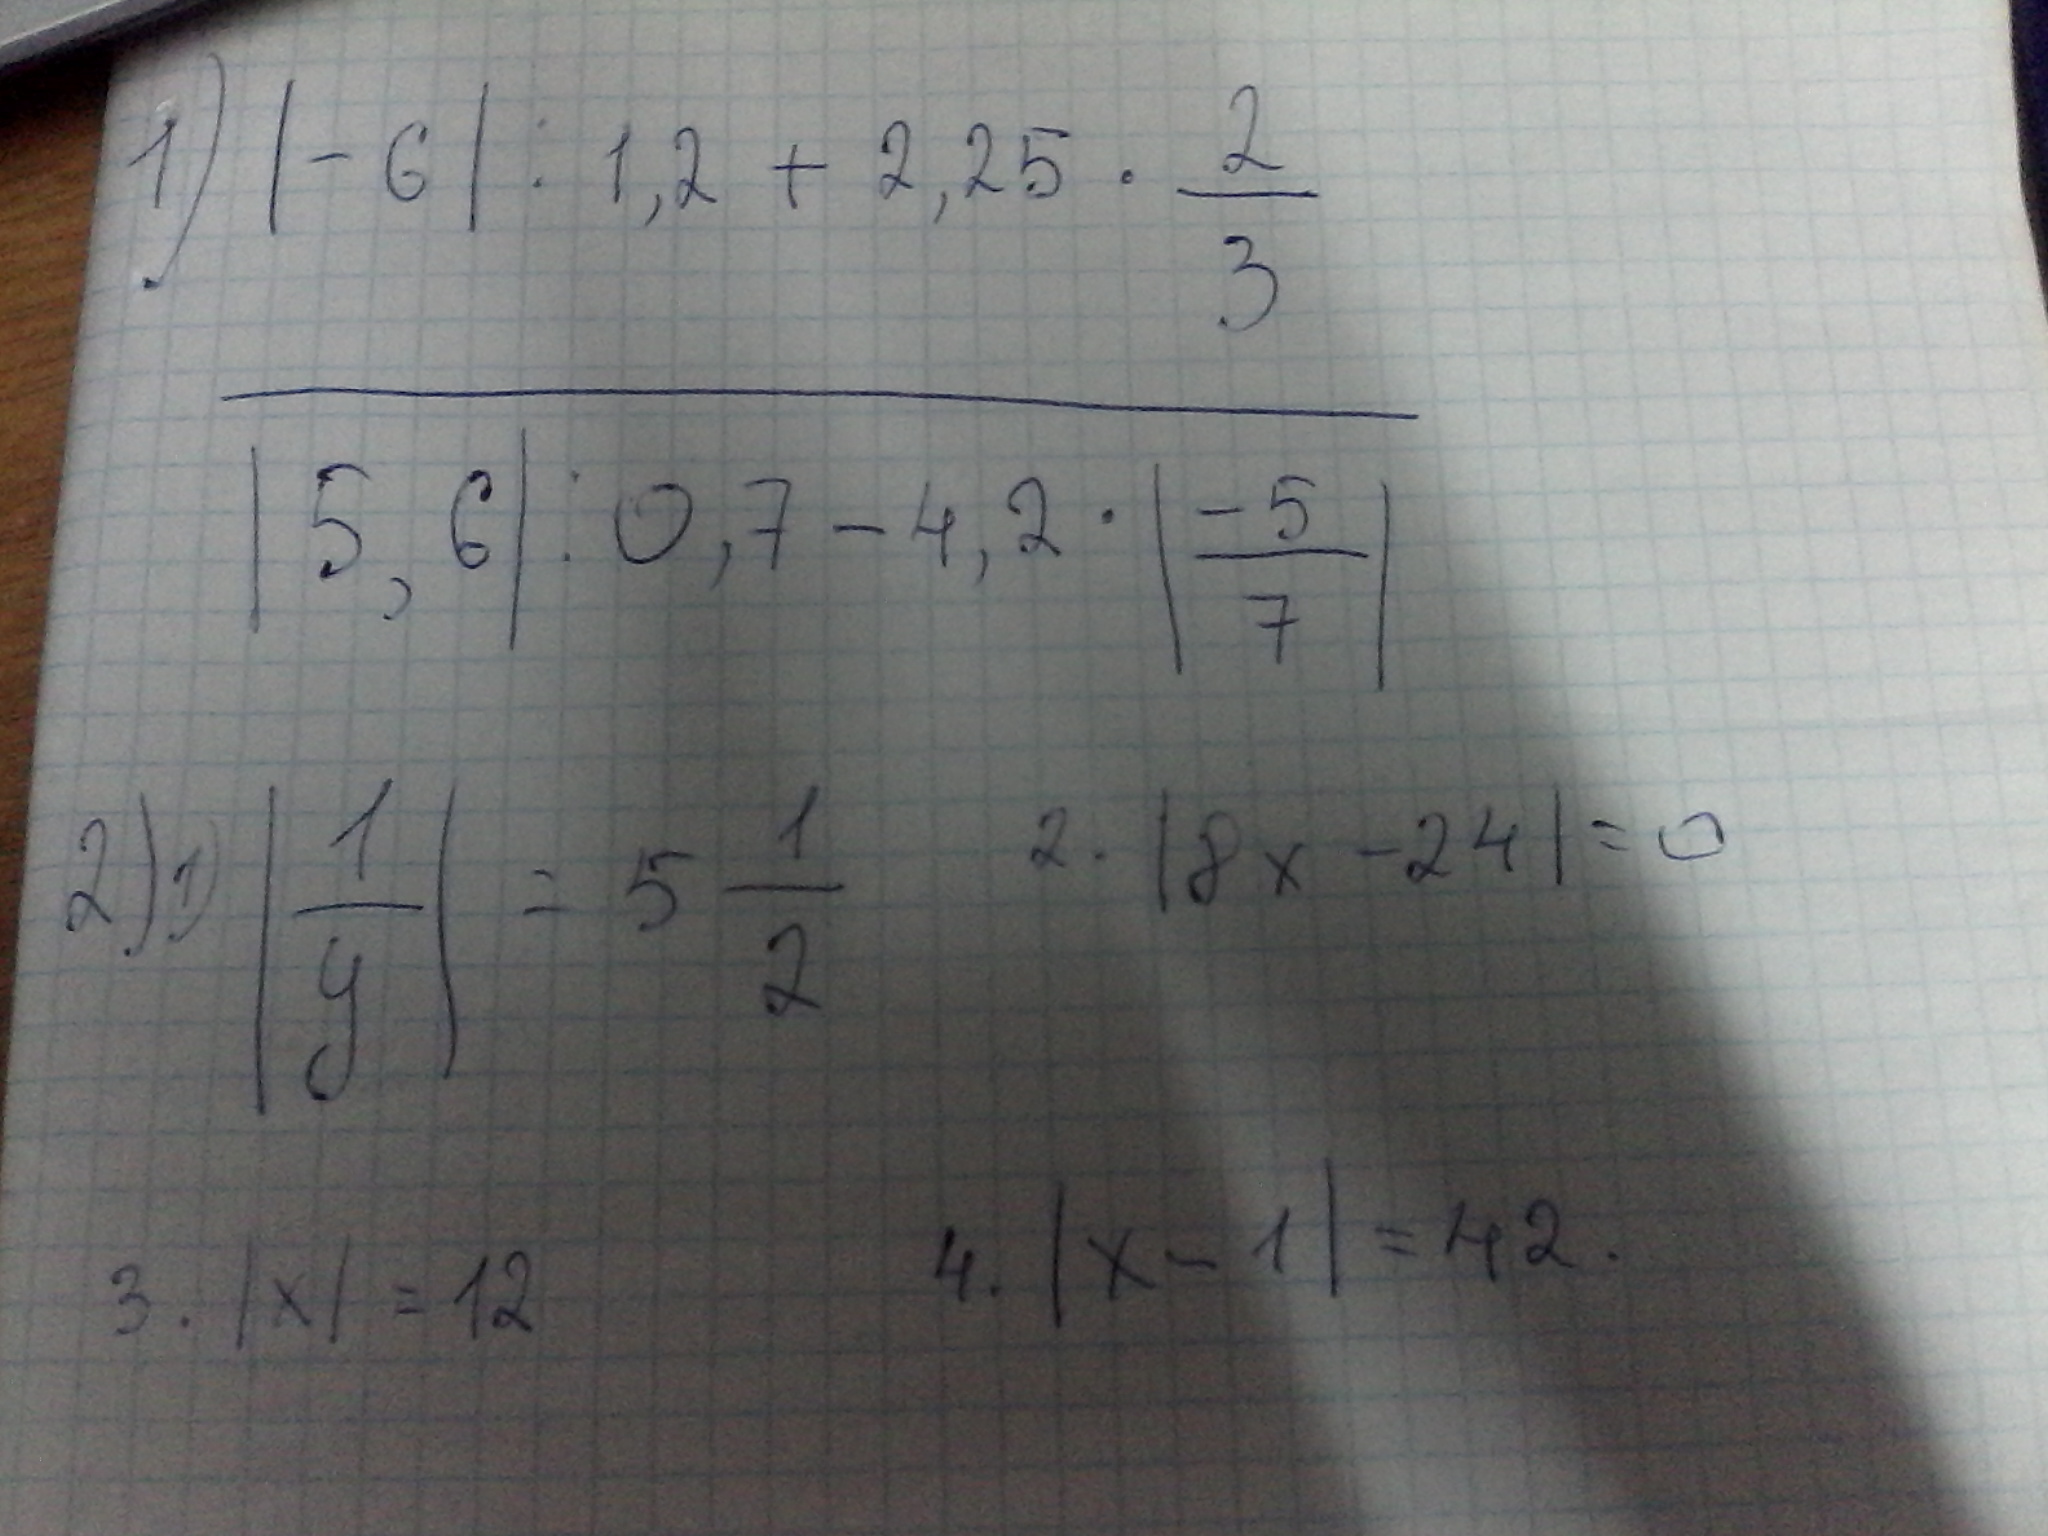 1) |-6| : 1,2 + 2,25 · 2/3
|5,6| : 0,7 - 4,2 · |-5/7|
2) 1) |1/y| = 5 1/2
2. |8x - 24| = 0
3. |x| = 12
4. |x - 1| = 42.